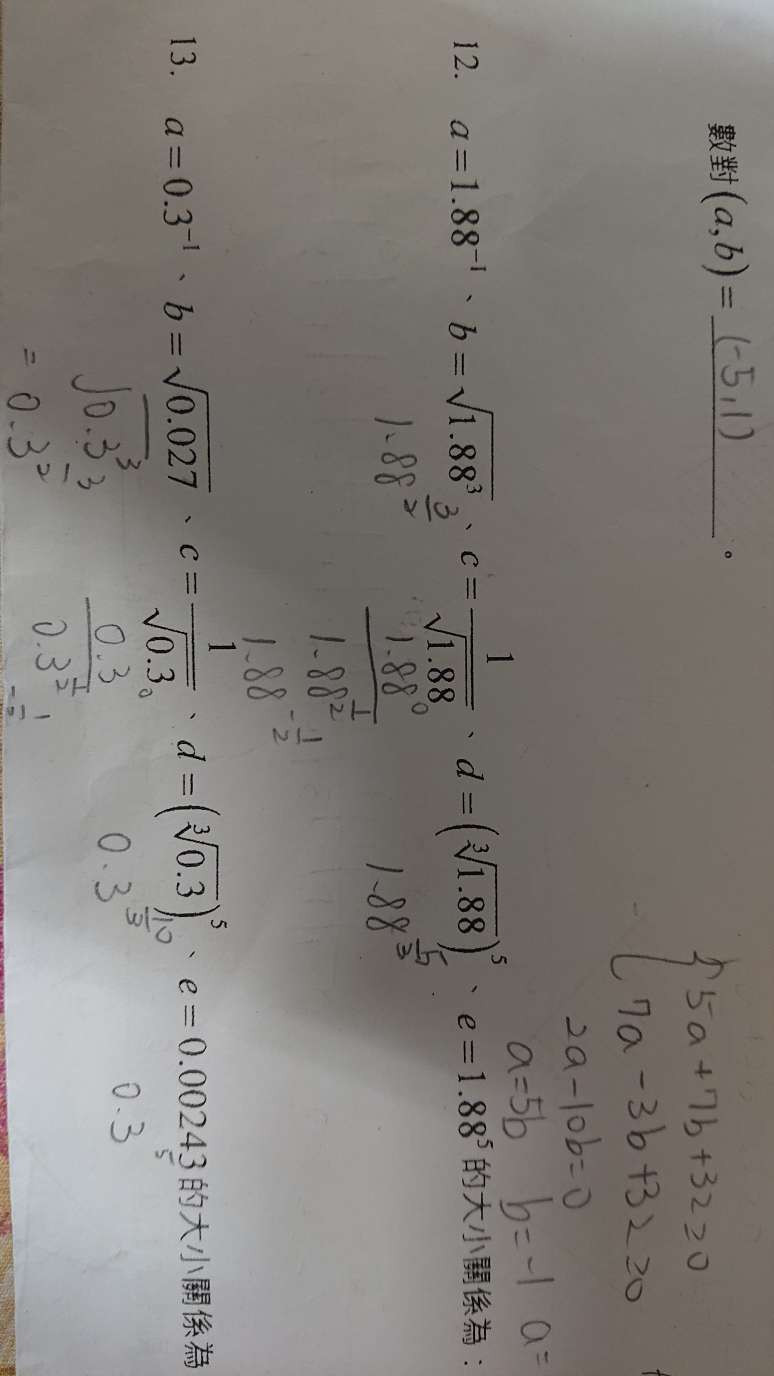 數對(a,b)= (-5,1) 。
{ 5a+7b+32≥0
7a-3b+32≥0
2a-10b=0
a=5b b=-1 a=
12. a=1.88⁻¹、b=√(1.88³)、c=1/√1.88、d=(∛1.88)⁵、e=1.88⁵的大小關係為:
1.88^(3/2) 1.88⁰/1.88^(1/2) 1.88^(5/3)
1.88^(-1/2)
13. a=0.3⁻¹、b=√0.027、c=1/√0.3、d=(∛0.3)⁵、e=0.00243的大小關係為
√(0.3³) 0.3⁰/0.3^(1/2) 0.3 0.3⁵